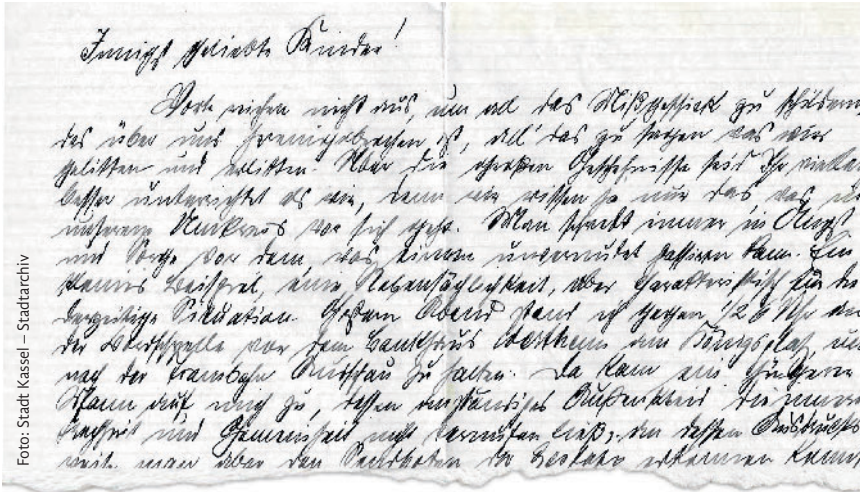 Innigst geliebte Kinder!
Worte reichen nicht aus, um all das Mißgeschick zu schildern
das über uns hereingebrochen ist, all' das zu sagen was wir
gelitten und erlitten. Über die großen Geschehnisse seid Ihr vielleicht
besser unterrichtet als wir, denn wir wissen ja nur das was in
unserem Umkreis vor sich geht. Man schwebt immer in Angst
und Sorge vor dem was einem unvermutet passieren kann. Ein
kleines Beispiel, eine Nebensächlichkeit, aber charakteristisch für die
derzeitige Situation. Gestern Abend stand ich gegen 1/2 6 Uhr an
der Haltestelle vor dem Bankhaus Werthauer am Königsplatz, um
nach der Trambahn Ausschau zu halten. Da kam ein jüngerer
Mann auf mich zu, dessen anständiges Außenkleid die innere
und Gemeinheit nicht vermuten ließ, an dessen Ausdrucks
weise man aber den erkennen konnte
Foto: Stadt Kassel – Stadtarchiv